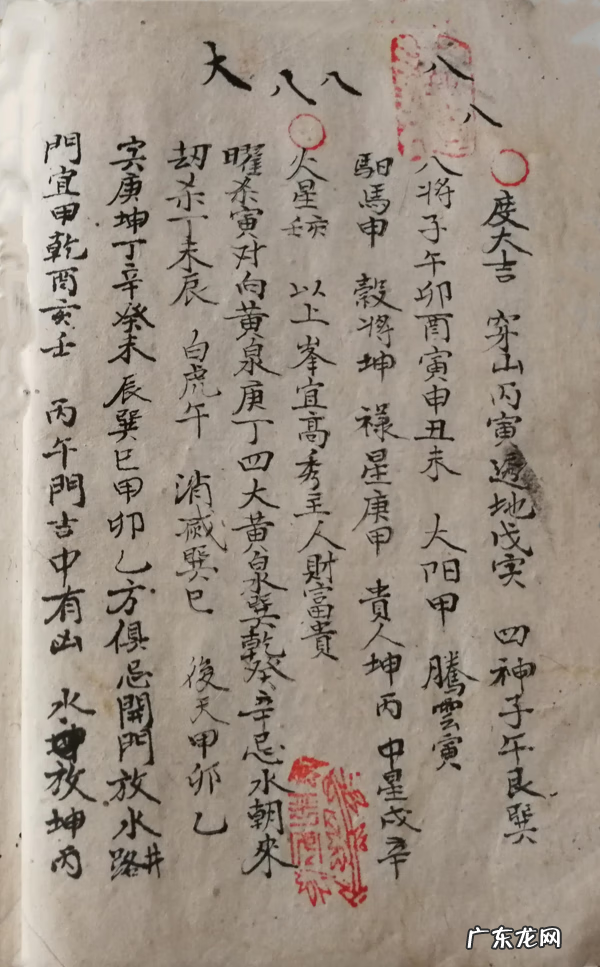 八 八 八 八 大
度大吉 穿山丙寅 地戊寅 四神子午艮巽
八将子午卯酉寅申丑未 大阳甲 騰雲寅
馹馬申 穀将坤 禄星庚甲 貴人坤丙 中星戌辛
火星壬亥 以上峯宜高秀主人財富貴
曜杀寅对向黄泉庚丁四大黄泉巽乾癸辛忌水朝來
劫杀丁未辰 白虎午 消滅巽巳 後天甲卯乙
寅庚坤丁辛癸未辰巽巳甲卯乙方俱忌開門放水路井
門宜甲乾酉亥壬 丙午門吉中有凶 水放坤丙
广东龙网